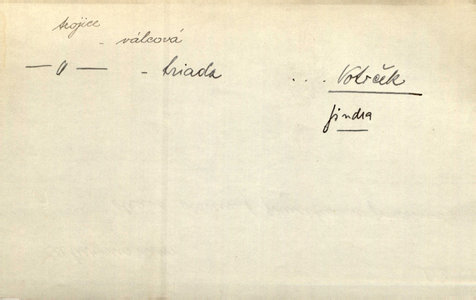 trojice
- válcová
— " — - triada ... Votoček
jindra